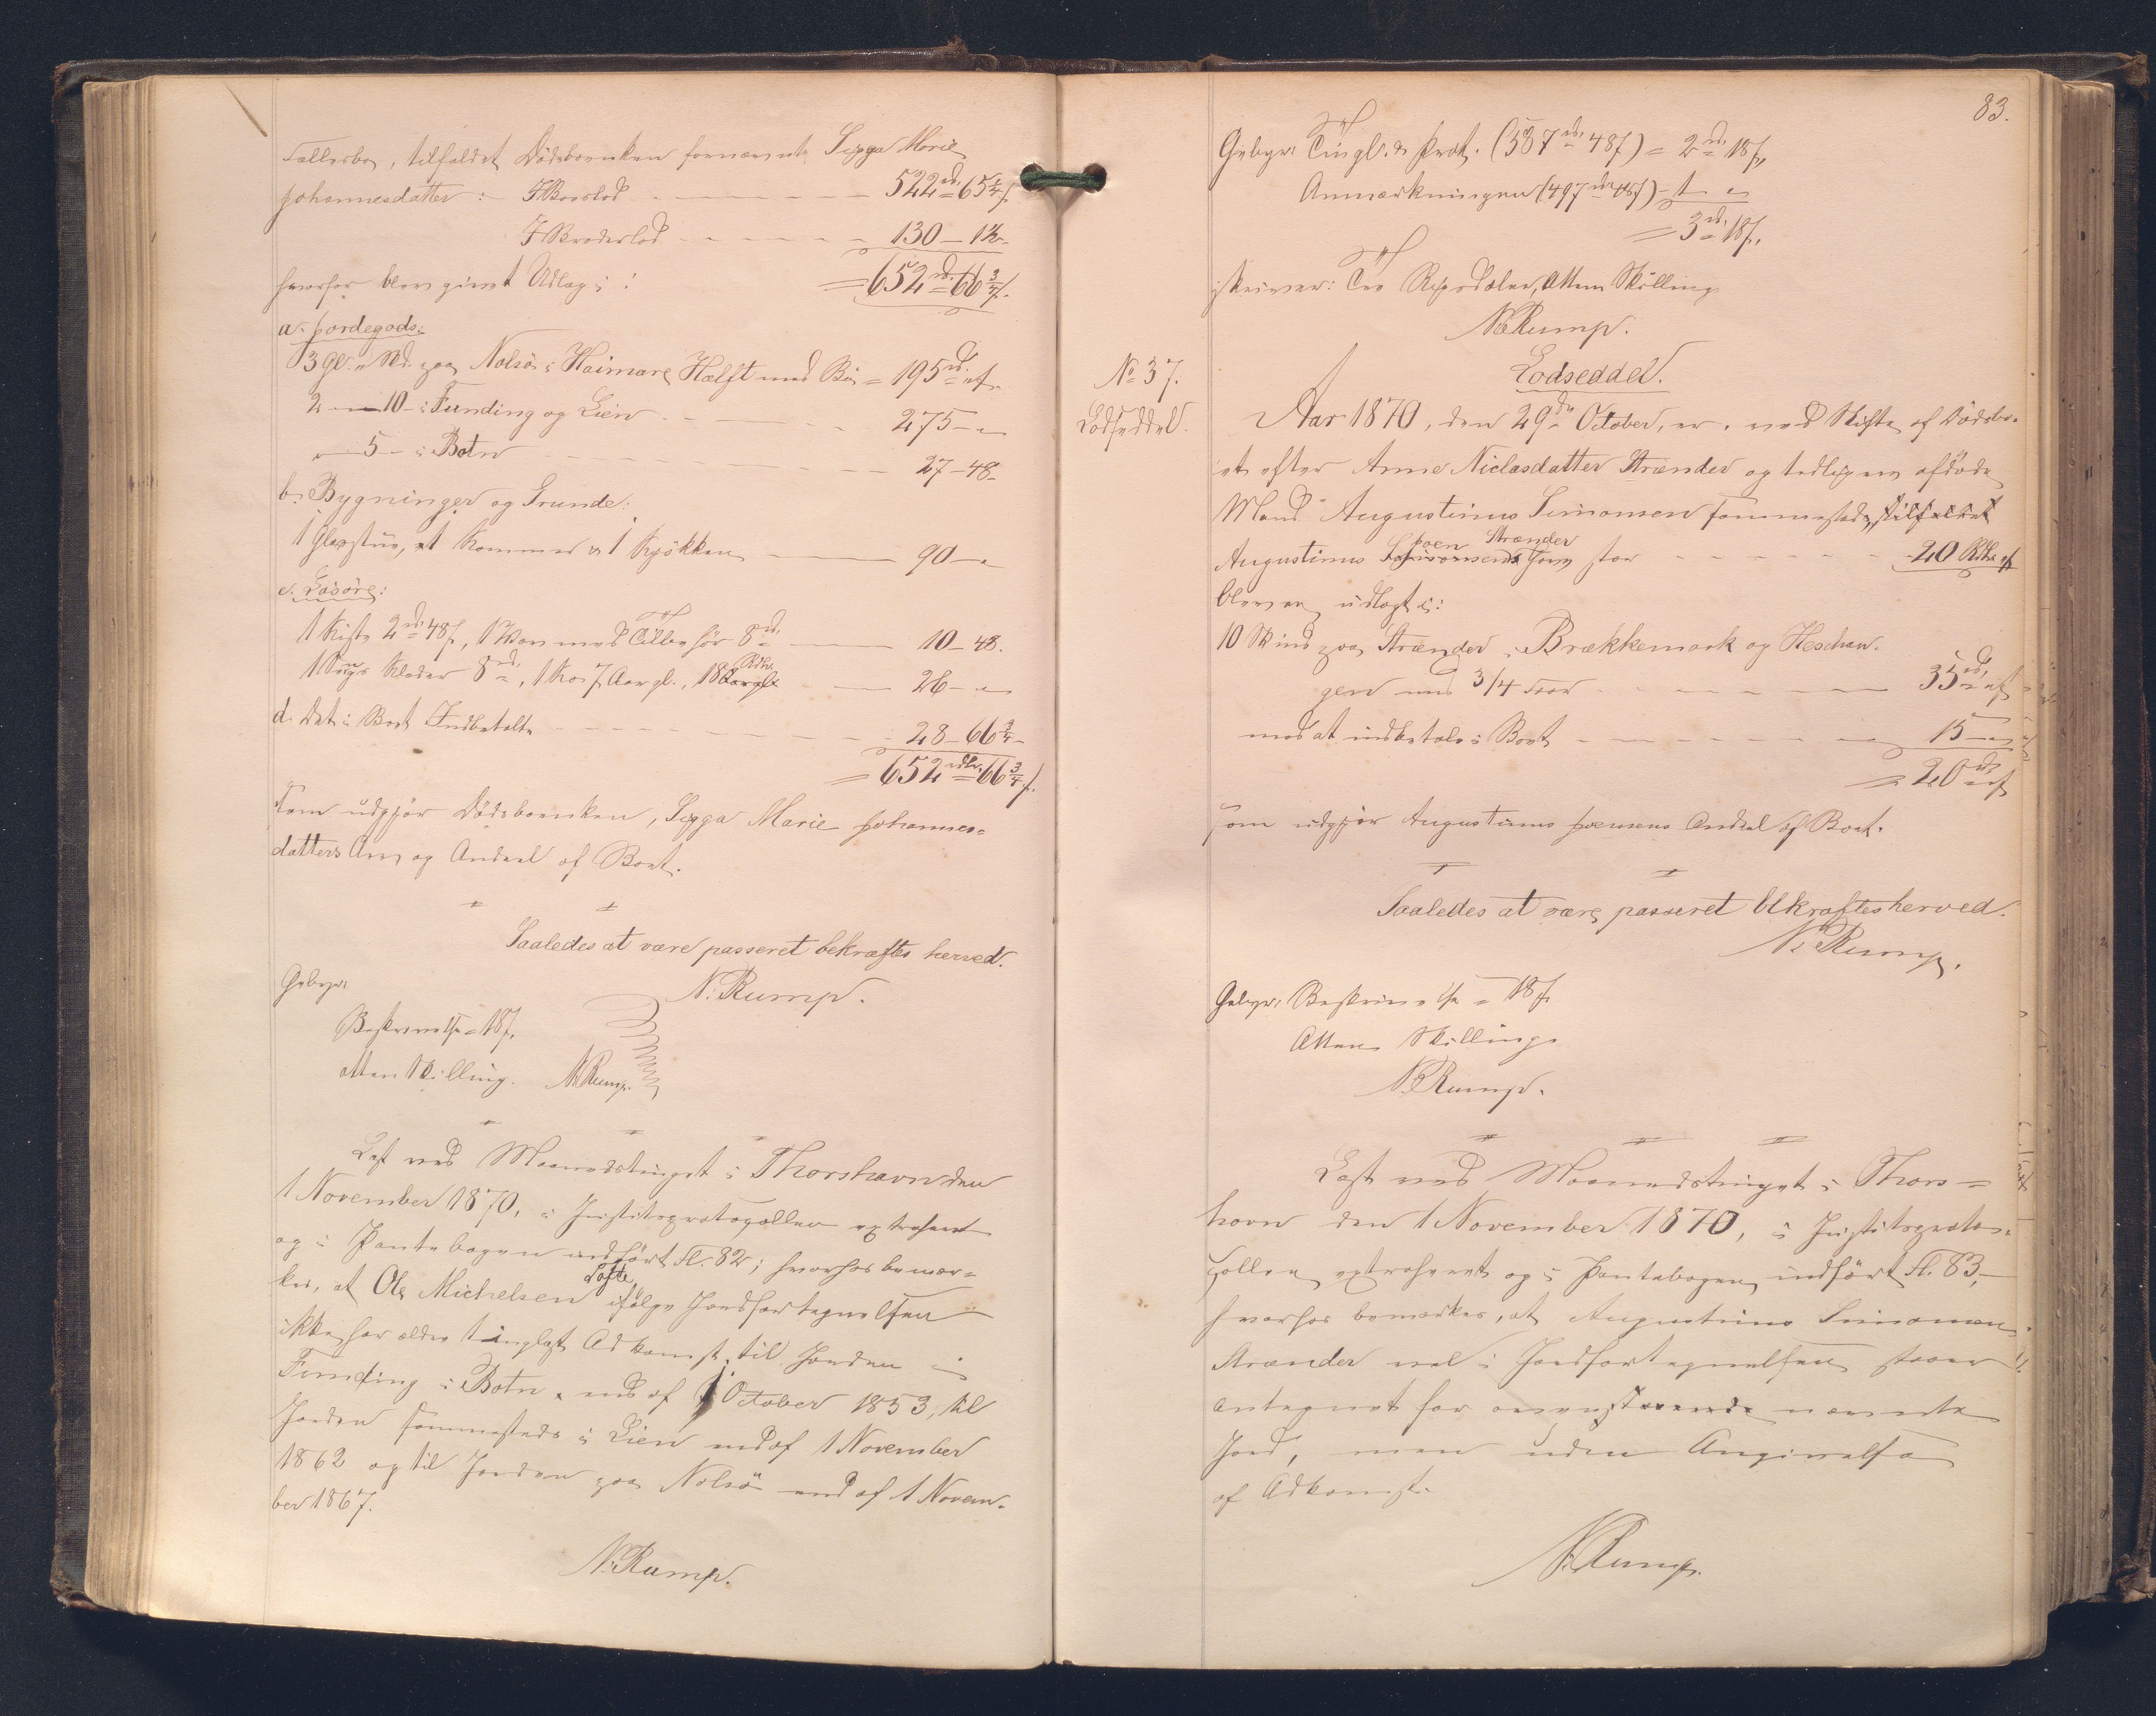 Fællesbo, tilfaldet Dødsboenken fornævnte Sigga Marie
Johannesdatter: I Boeslod 522 rd. 65 1/4 ß.
I Broderlod 130 – 1 1/2 –
hvorfor blev givet Udlæg i: = 652 rd. 66 3/4 ß.
a. Jordegods:
3 Gl. " Sk. paa Nolsø i Haimare Hælft med Bø = 195 rd. " ß.
2 — 10 – i Funding og Lien 275 – "
" — 5 – i Botn 27 – 48 –
b. Bygninger og Grunde:
1 Glasstue, et Kammer og 1 Kjøkken 90 – "
c. Løsøre:
1 Kiste 2 rd. 48 ß, 1 med Tilbehør 8 rd. 10 – 48.
1 Sengs Klæder 8 rd., 1 Ko 7 Aar gl., 18 Rdlr. 26 – "
d. Det i Boet Indbetalte 28 – 66 3/4 –
= 652 rdlr. 66 3/4 ß.
som udgjør Dødsboenken, Sigga Marie Johannes=
datters Arv og Andeel af Boet.
Saaledes at være passeret bekræftes herved.
N. Rump.
Gebyr:
Beskrivelse = 18 ß.
atten Skilling. N. Rump.
Læst ved Maanedstinget i Thorshavn den
1 November 1870, i Justitsprotocollen extraheret
og i Pantebogen indført Fl. 82; hvorhos bemær=
kes, at Ole Michelsen Dofte ifølge Jordfortegnelsen
ikke har ældre tinglæst Adkomst til Jorden i
Funding i Botn end af 1 October 1853, til
Jorden sammesteds i Lien end af 1 November
1862 og til Jorden paa Nolsø end af 1 Novem-
ber 1867.
N. Rump.
83.
Gebyr: Tingl. & Prot. (537 rd. 48 ß) = 2 rd. 18 ß.
Anmærkningen (497 rd. 48 ß) – 1 – "
= 3 rd. 18 ß.
skriver: Tre Rigsdaler, Atten Skilling
N. Rump.
No 37.
Lodseddel.
Lodseddel.
Aar 1870, den 29de October, er, ved Skifte af Dødsbo-
et efter Anne Niclasdatter Strænder og tidligere afdøde
Mand Augustinus Simonsen sammesteds, tilfaldet
Augustinus Joensen Strænder som Søn 20 Rdlr. " ß
hvorfor udlagt i:
10 Skind paa Strænder, i Brækkemark og Heschau-
gen med 3/4 Foer 35 rd. " ß
mod at indbetale i Boet 15 – "
= 20 rd. " ß
som udgjør Augustinus Joensens Andeel af Boet.
Saaledes at være passeret bekræftes herved.
N. Rump.
Gebyr: Beskrivelse = 18 ß.
Atten Skilling
N. Rump.
Læst ved Maanedstinget i Thors=
havn den 1 November 1870, i Justitsproto-
collen extraheret og i Pantebogen indført Fl. 83,
hvorhos bemærkes, at Augustinus Simonsen
Strænder vel i Jordfortegnelsen staaer
antegnet for ovenstaaende nævnte
Jord, men uden Angivelse
af Adkomst.
N. Rump.